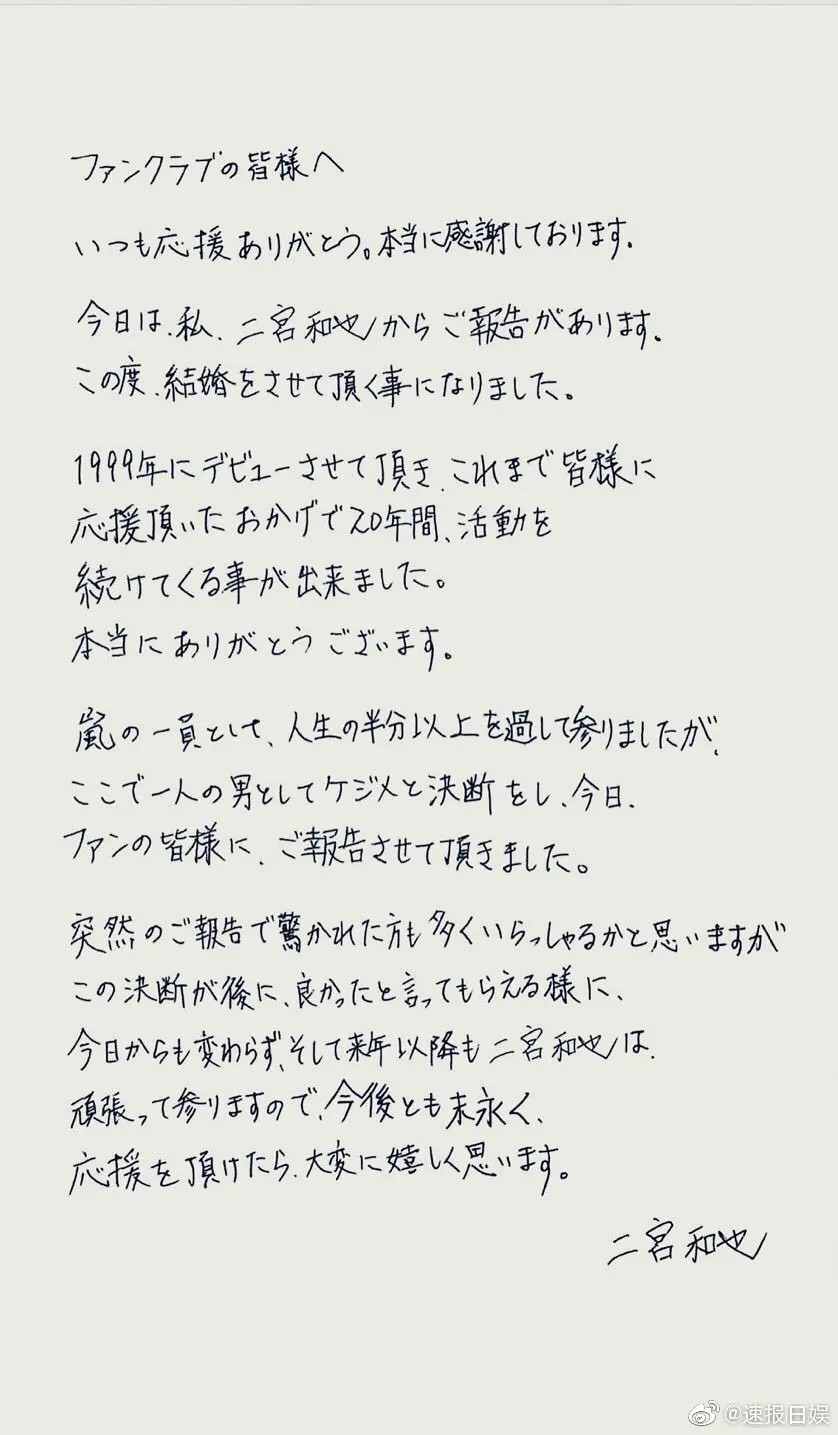 ファンクラブの皆様へ
いつも応援ありがとう。本当に感謝しております.
今日は、私、二宮和也からご報告があります.
この度、結婚をさせて頂く事になりました。
1999年にデビューさせて頂き、これまで皆様に
応援頂いたおかげで20年間、活動を
続けてくる事が出来ました。
本当にありがとうございます。
嵐の一員として、人生の半分以上を過して参りましたが、
ここで一人の男としてケジメと決断をし、今日、
ファンの皆様に、ご報告させて頂きました。
突然のご報告で驚かれた方も多くいらっしゃるかと思いますが
この決断が後に、良かったと言ってもらえる様に、
今日からも変わらず、そして来年以降も二宮和也は、
頑張って参りますので、今後とも末永く、
応援を頂けたら、大変に嬉しく思います。
二宮和也
@速报日娱